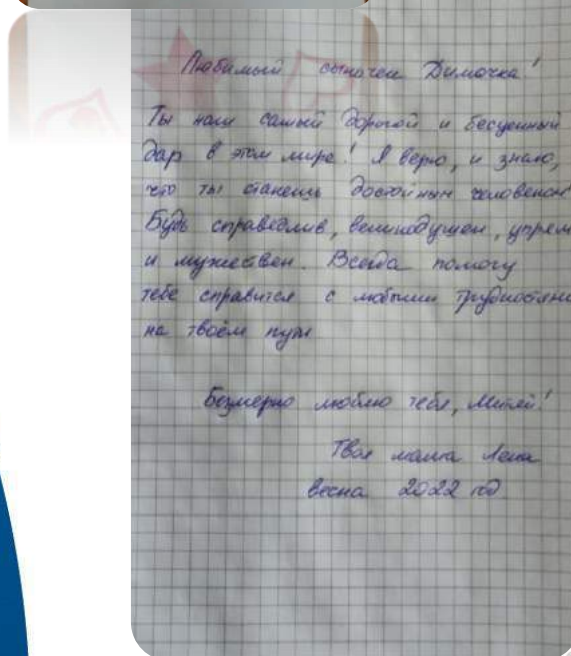 Любимый сыночек Димочка!
Ты наш самый дорогой и бесценный
дар в этом мире! Я верю, и знаю,
что ты станешь достойным человеком
Будь справедлив, великодушен, упрям
и мужествен. Всегда помогу
тебе справится с любыми трудностями
на твоём пути
Безмерно люблю тебя, Митяй!
Твоя мама Лена
весна 2022 год